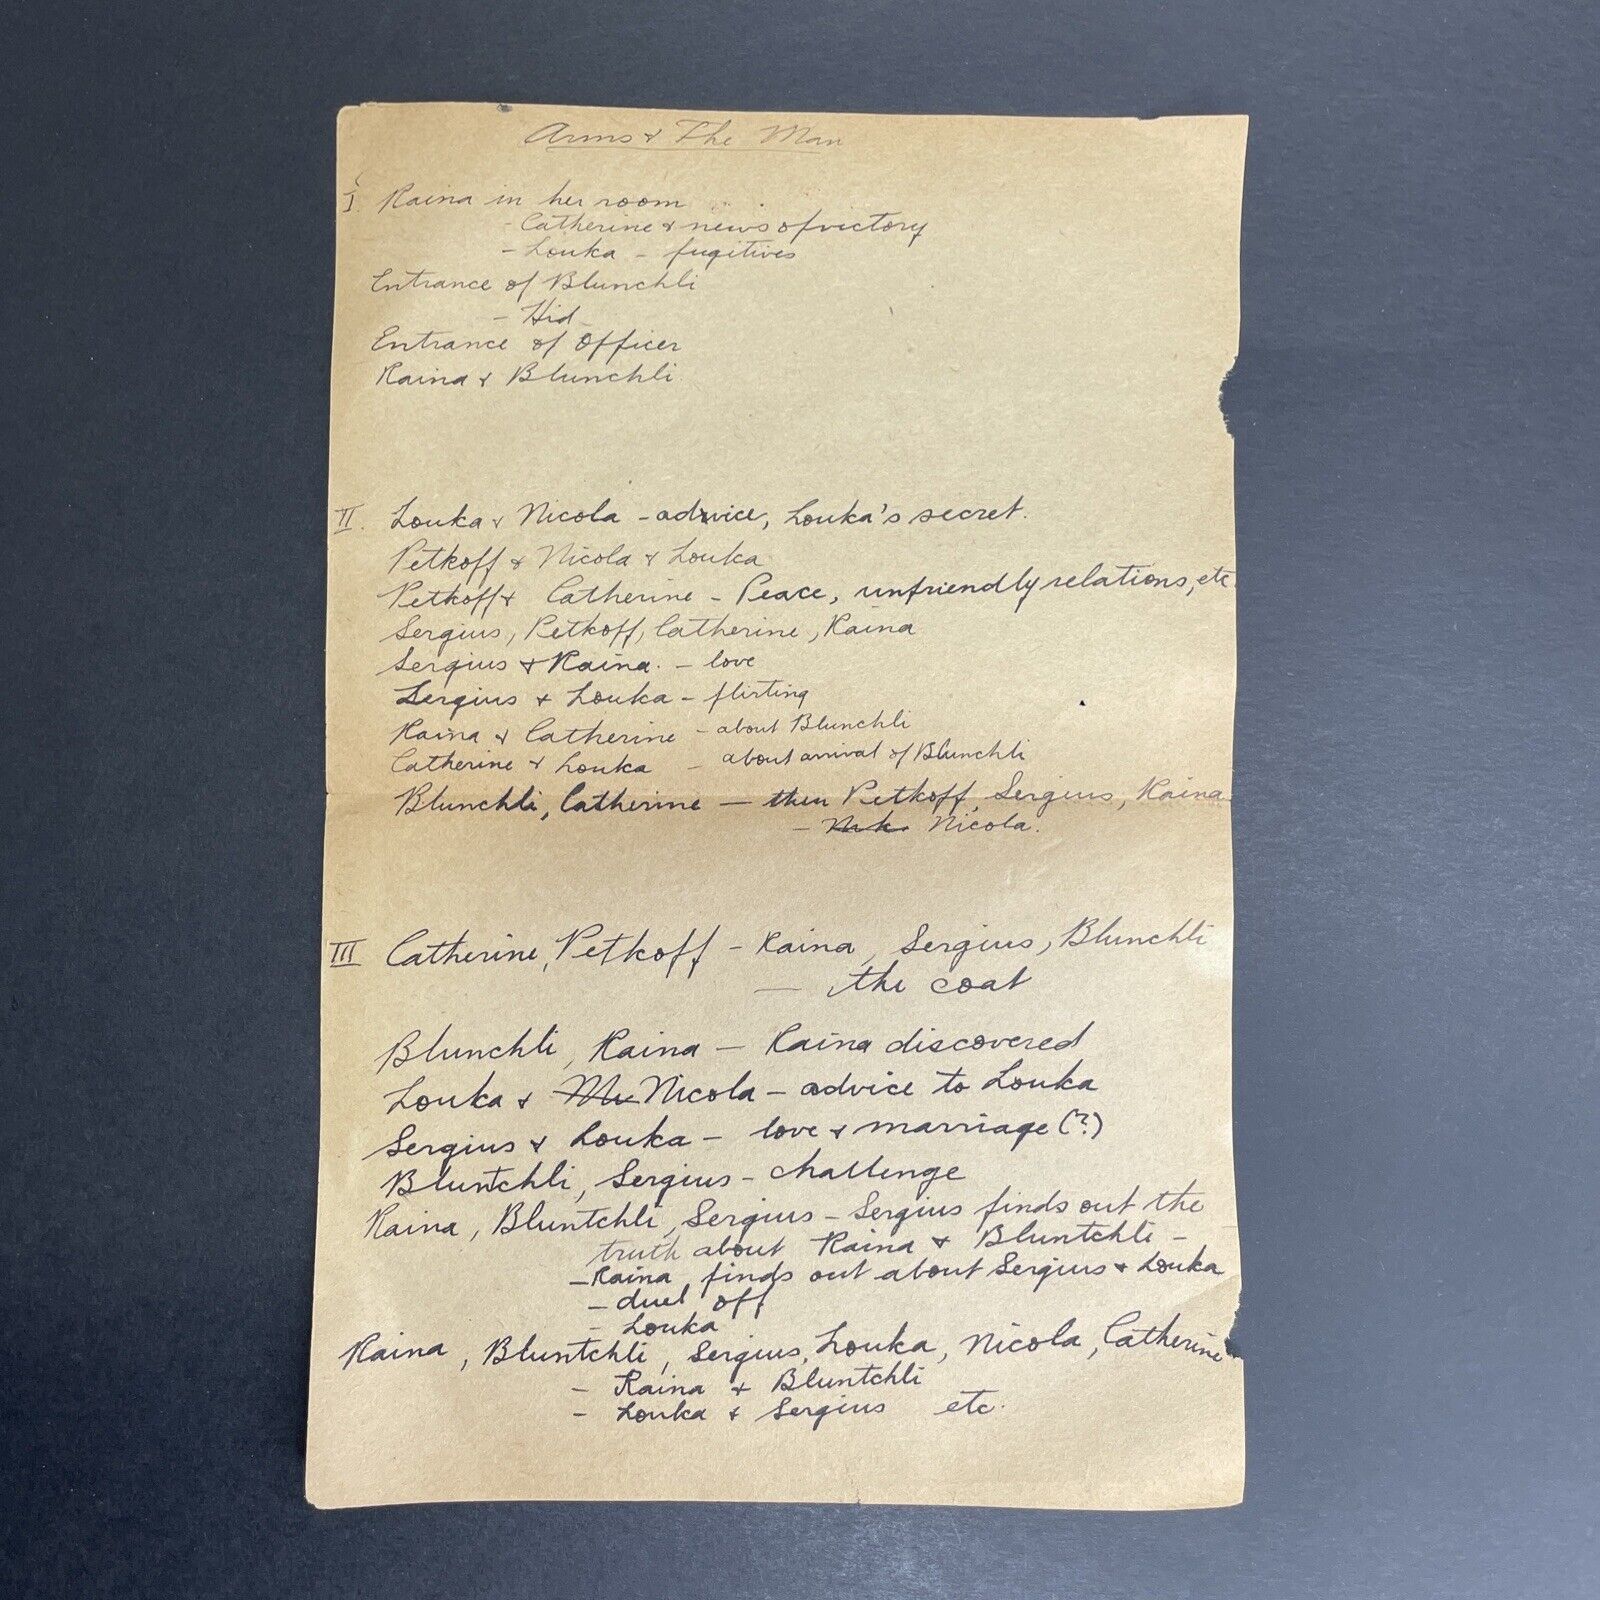 Arms & The Man
I. Raina in her room
- Catherine & news of victory
- Louka - fugitives
Entrance of Blunchli
- Hid
Entrance of Officer
Raina & Blunchli
II. Louka & Nicola - advice, Louka's secret.
Petkoff & Nicola & Louka
Petkoff & Catherine - Peace, unfriendly relations, etc
Sergius, Petkoff, Catherine, Raina
Sergius & Raina. - love
Sergius & Louka - flirting
Raina & Catherine - about Blunchli
Catherine & Louka - about arrival of Blunchli
Blunchli, Catherine - then Petkoff, Sergius, Raina
- Nicola.
III Catherine, Petkoff - Raina, Sergius, Blunchli
- the coat
Blunchli, Raina - Raina discovered
Louka & Nicola - advice to Louka
Sergius & Louka - love & marriage (?)
Bluntchli, Sergius - challenge
Raina, Bluntchli, Sergius - Sergius finds out the
truth about Raina & Bluntchli -
- Raina finds out about Sergius & Louka
- duel off
- Louka
Raina, Bluntchli, Sergius, Louka, Nicola, Catherine
- Raina & Bluntchli
- Louka & Sergius etc.